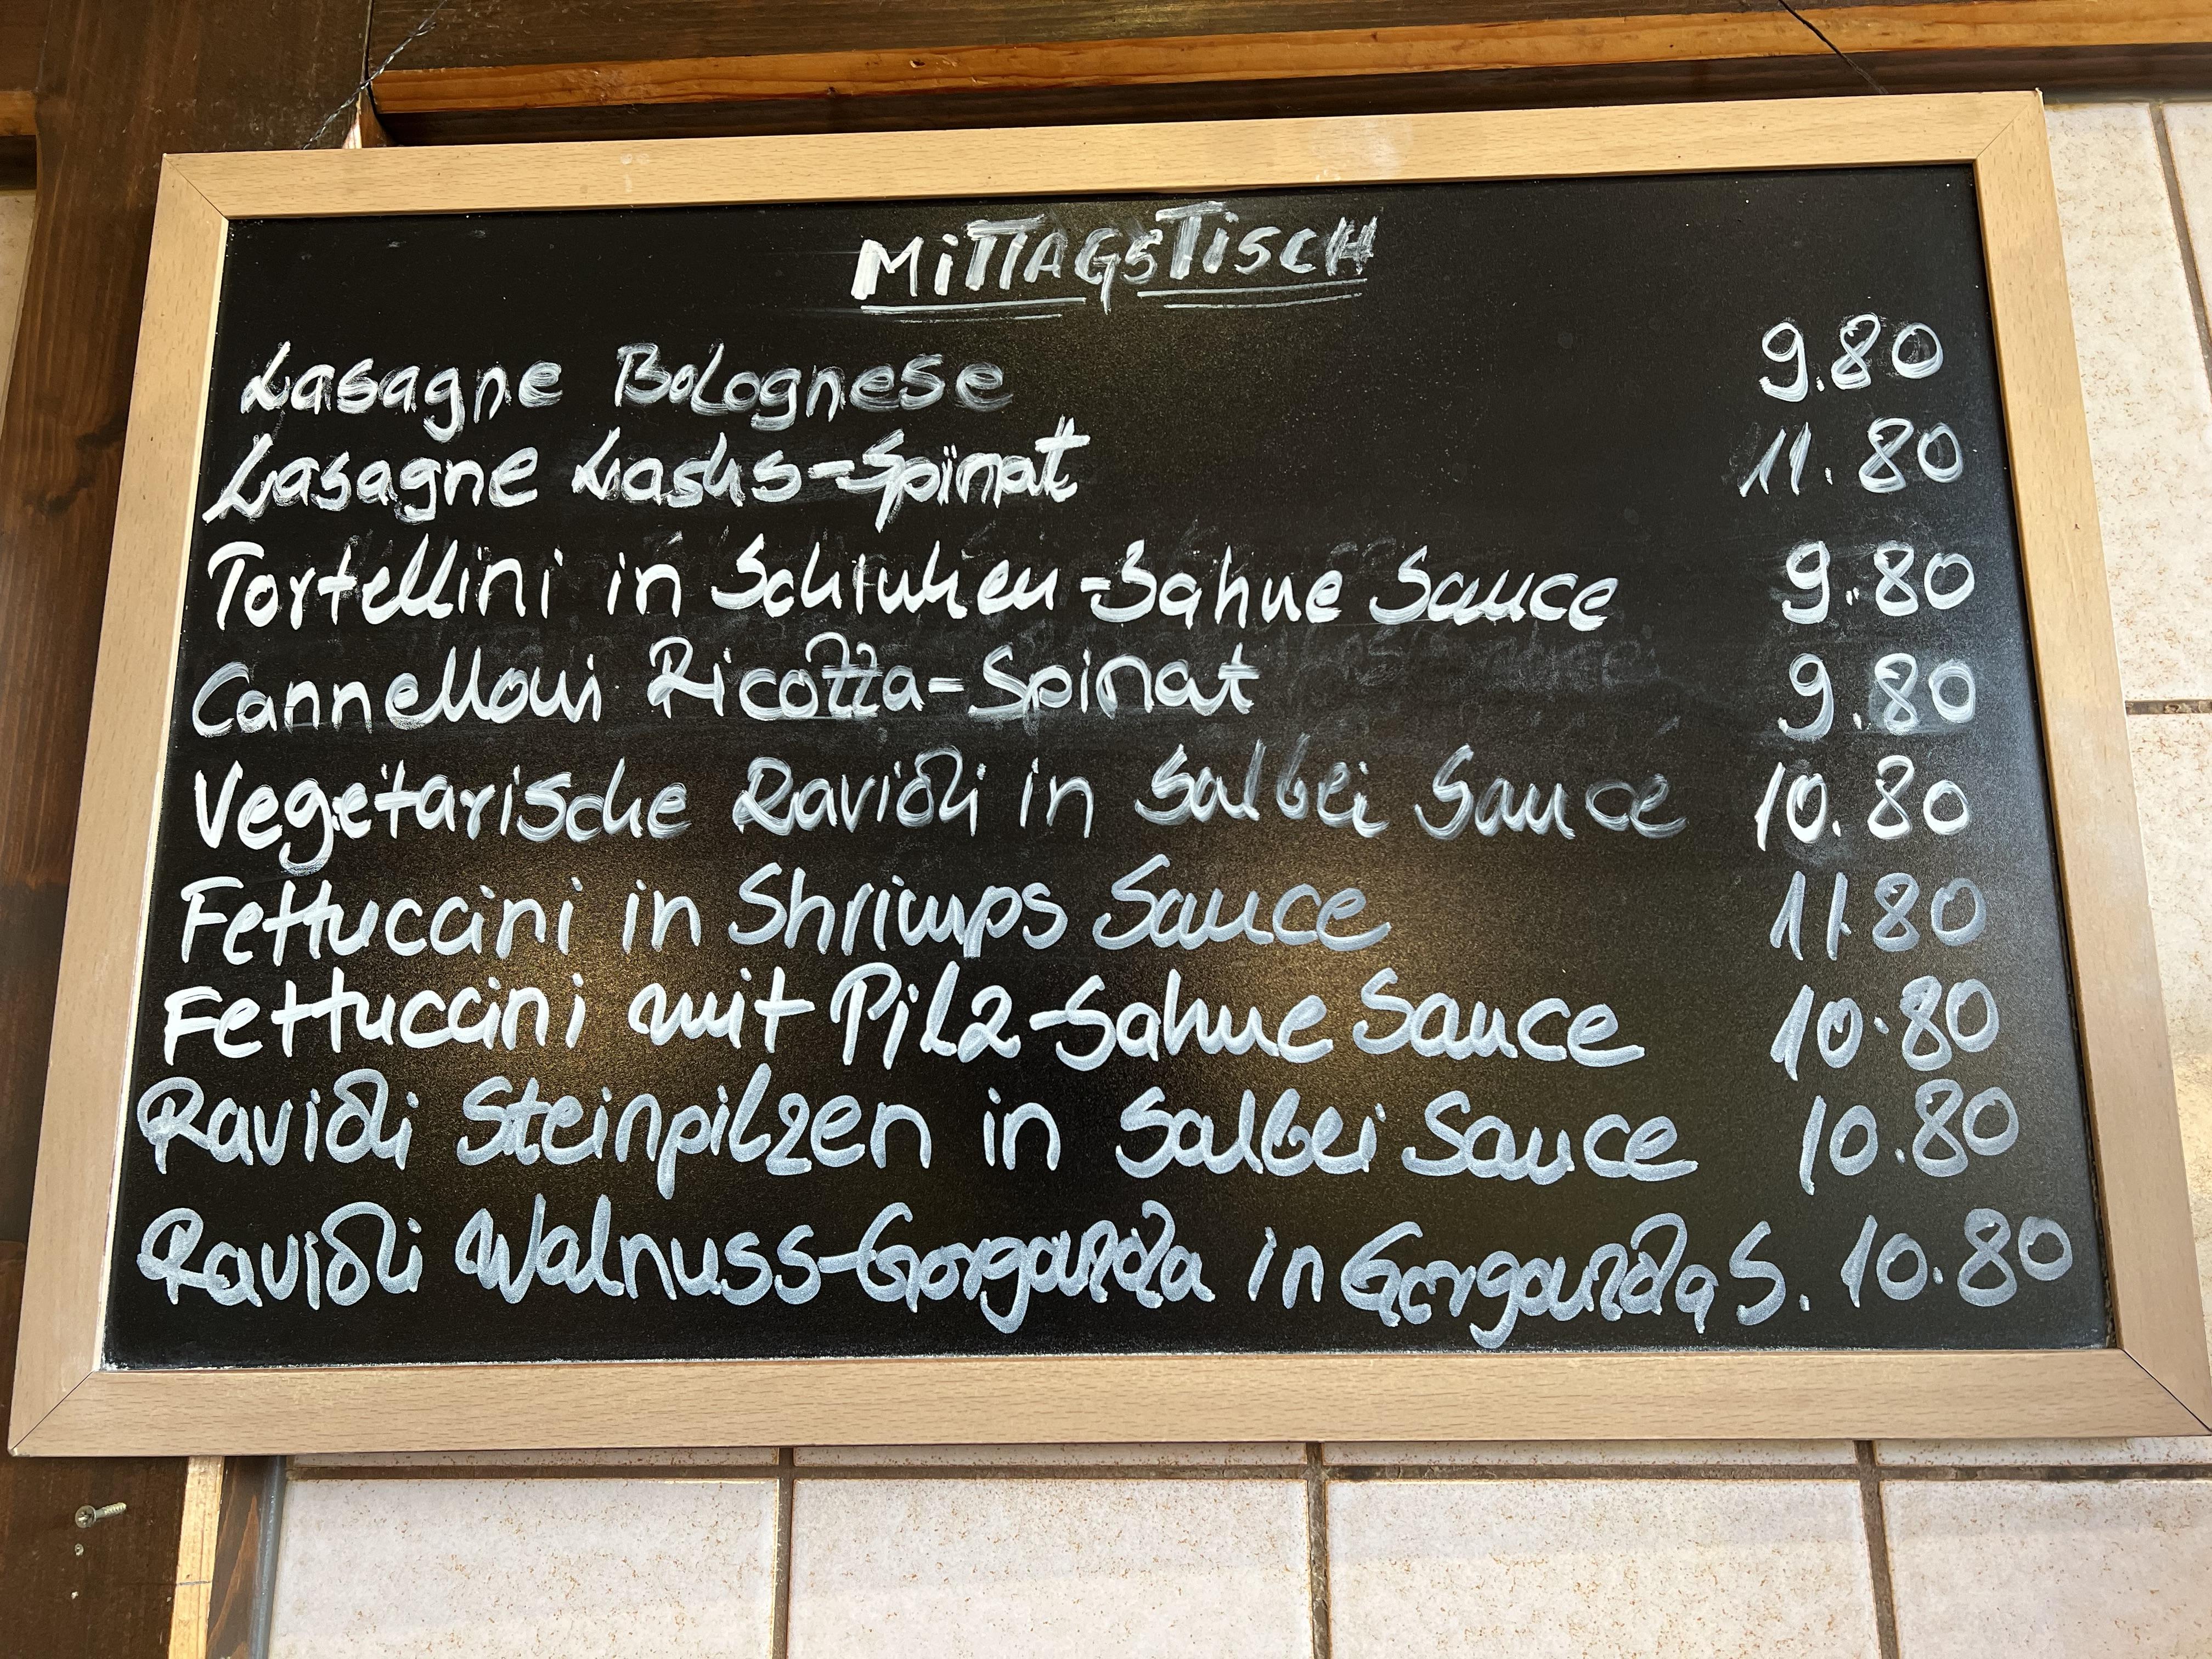 MITTAGSTISCH
Lasagne Bolognese 9.80
Lasagne Lachs-Spinat 11.80
Tortellini in Schinken-Sahne Sauce 9.80
Cannelloni Ricotta-Spinat 9.80
Vegetarische Ravioli in Salbei Sauce 10.80
Fettuccini in Shrimps Sauce 11.80
Fettuccini mit Pilz-Sahne Sauce 10.80
Ravioli Steinpilzen in Salbei Sauce 10.80
Ravioli Walnuss-Gorgonzola in Gorgonzola S. 10.80